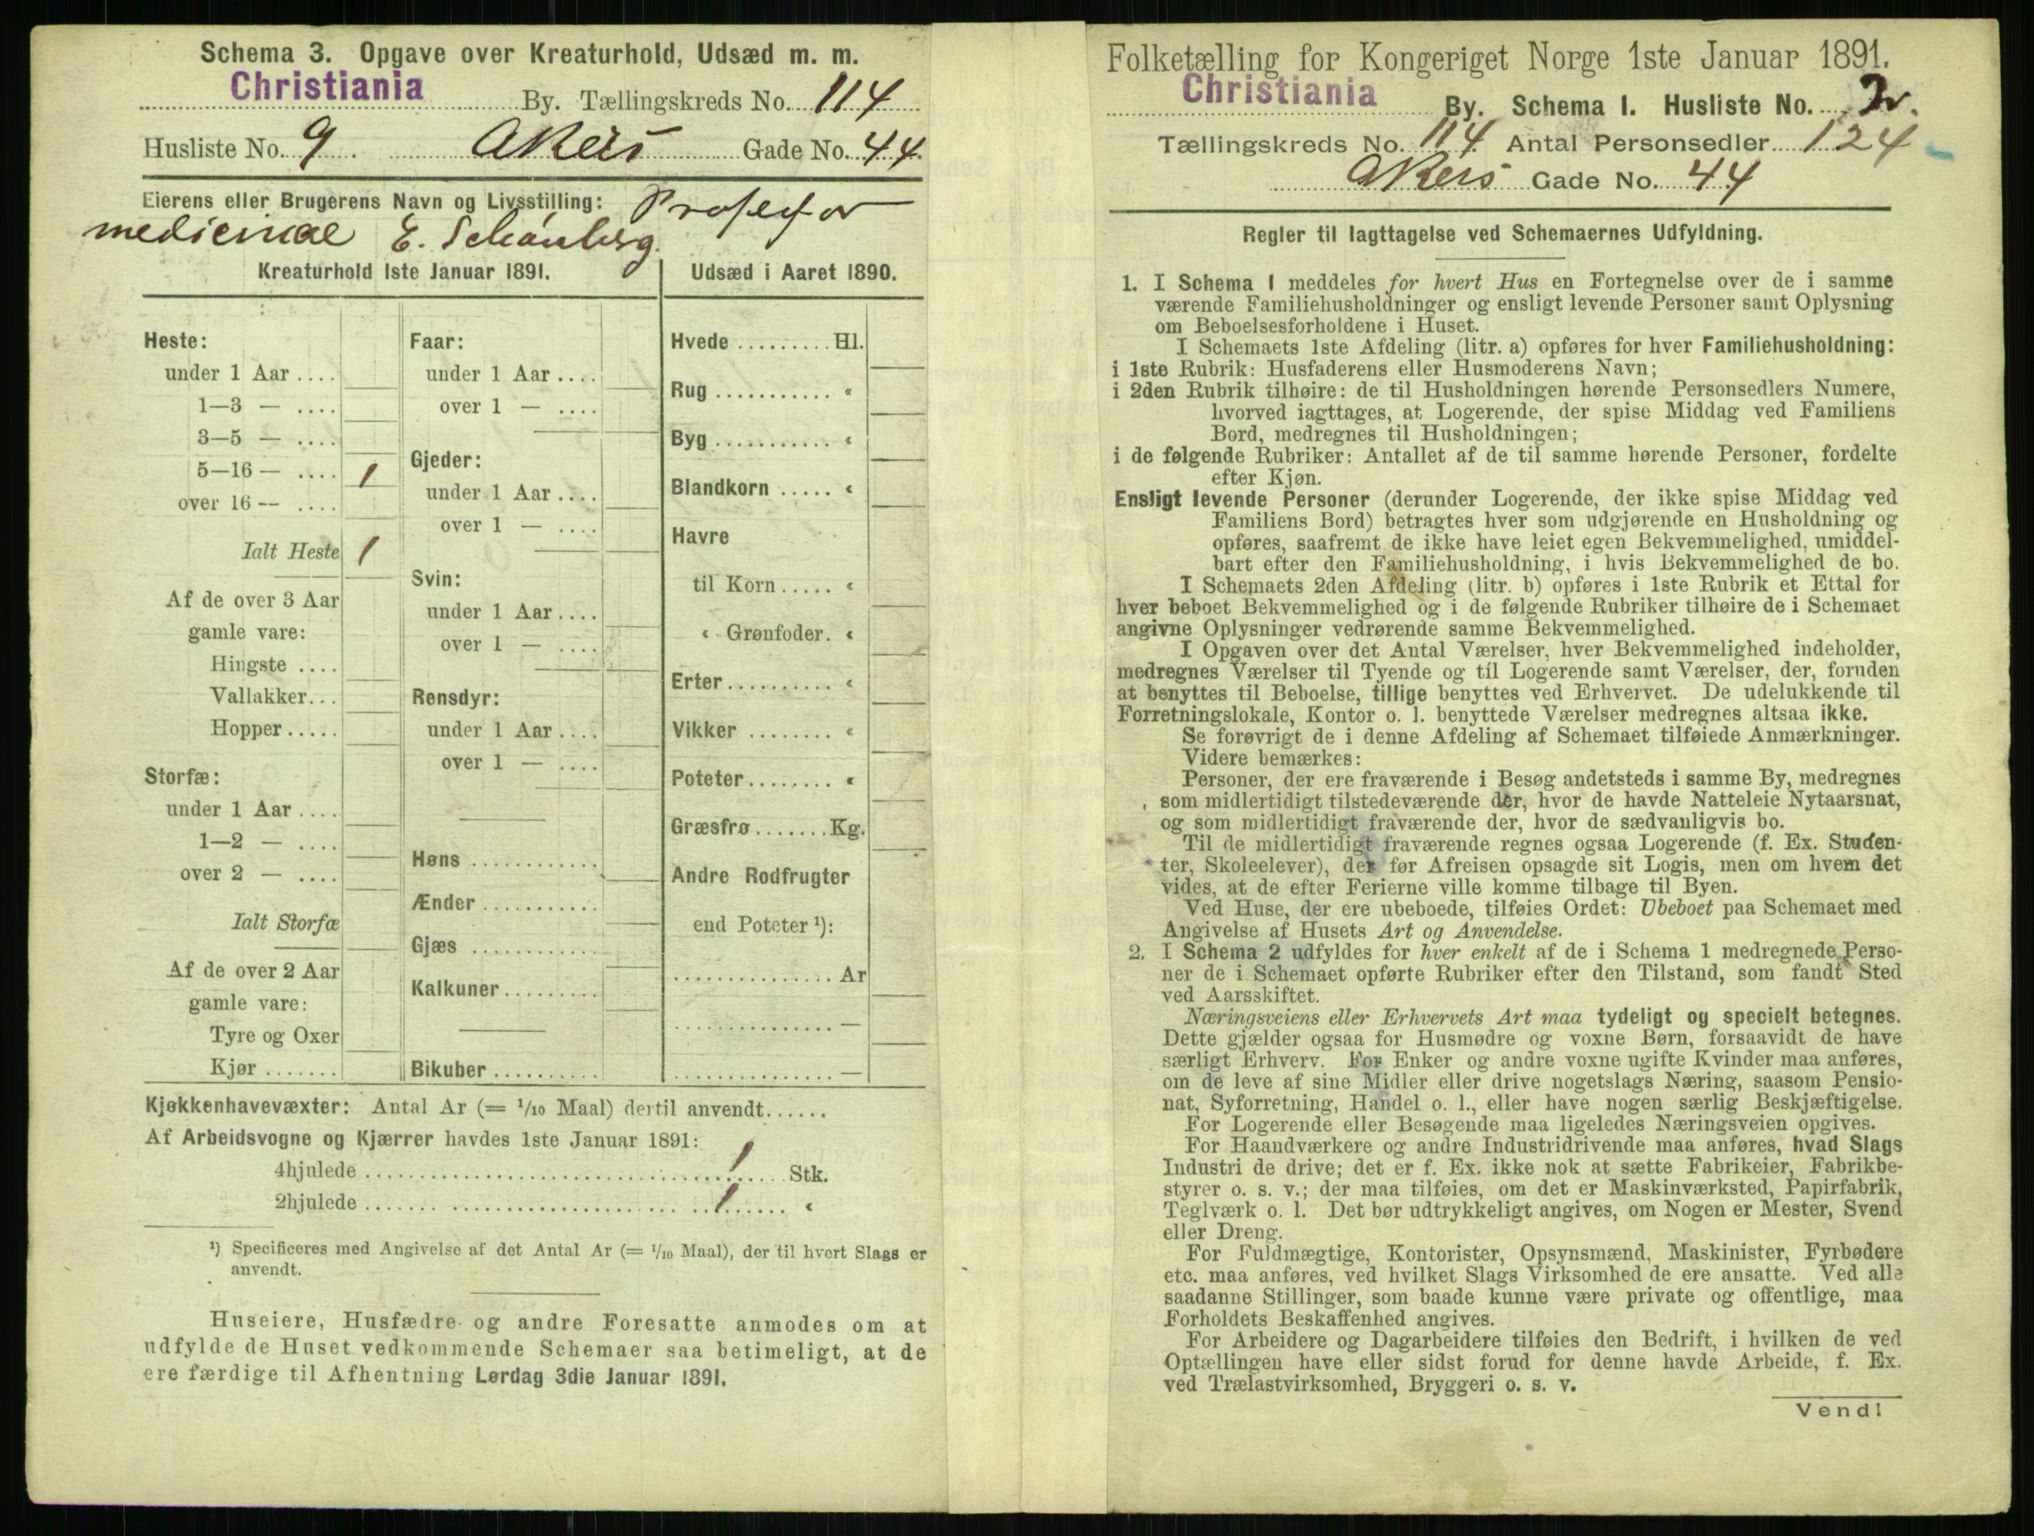 Schema 3. Opgave over Kreaturhold, Udsæd m. m.
Christiania By. Tællingskreds No. 114
Husliste No. 9. Akers Gade No. 44.
Eierens eller Brugerens Navn og Livsstilling: Professor
medicinae E. Schönberg.
Kreaturhold 1ste Januar 1891.
Heste:
under 1 Aar ....
1—3 — ....
3—5 — ....
5—16 — .... 1
over 16 — ....
Ialt Heste 1
Af de over 3 Aar
gamle vare:
Hingste ....
Vallakker...
Hopper.....
Storfæ:
under 1 Aar ....
1—2 — ....
over 2 — ....
Ialt Storfæ
Af de over 2 Aar
gamle vare:
Tyre og Oxer
Kjør .......
Faar:
under 1 Aar ....
over 1 — ....
Gjeder:
under 1 Aar ....
over 1 — ....
Svin:
under 1 Aar ....
over 1 — ....
Rensdyr:
under 1 Aar ....
over 1 — ....
Høns ............
Ænder ...........
Gjæs ............
Kalkuner.........
Bikuber ..........
Udsæd i Aaret 1890.
Hvede ......... Hl.
Rug ........... «
Byg ........... «
Blandkorn ..... «
Havre
til Korn ..... «
« Grønfoder. «
Erter.......... «
Vikker ........ «
Poteter ........ «
Græsfrø ....... Kg.
Andre Rodfrugter
end Poteter ¹):
............... Ar
............... —
............... —
Kjøkkenhavevæxter: Antal Ar (= 1/10 Maal) dertil anvendt......
Af Arbeidsvogne og Kjærrer havdes 1ste Januar 1891:
4hjulede ........ 1 Stk.
2hjulede ........ 1 «
¹) Specificeres med Angivelse af det Antal Ar (= 1/10 Maal), der til hvert Slags er
anvendt.
Huseiere, Husfædre og andre Foresatte anmodes om at
udfylde de Huset vedkommende Schemaer saa betimeligt, at de
ere færdige til Afhentning Lørdag 3die Januar 1891.
Folketælling for Kongeriget Norge 1ste Januar 1891.
Christiania By. Schema 1. Husliste No.
Tællingskreds No. 114 Antal Personsedler 124
Akers Gade No. 44
Regler til Iagttagelse ved Schemaernes Udfyldning.
1. I Schema 1 meddeles for hvert Hus en Fortegnelse over de i samme
værende Familiehusholdninger og ensligt levende Personer samt Oplysning
om Beboelsesforholdene i Huset.
I Schemaets 1ste Afdeling (litr. a) opføres for hver Familiehusholdning:
i 1ste Rubrik: Husfaderens eller Husmoderens Navn;
i 2den Rubrik tilhøire: de til Husholdningen hørende Personsedlers Numere,
hvorved iagttages, at Logerende, der spise Middag ved Familiens
Bord, medregnes til Husholdningen;
i de følgende Rubriker: Antallet af de til samme hørende Personer, fordelte
efter Kjøn.
Ensligt levende Personer (derunder Logerende, der ikke spise Middag ved
Familiens Bord) betragtes hver som udgjørende en Husholdning og
opføres, saafremt de ikke have leiet egen Bekvemmelighed, umiddel-
bart efter den Familiehusholdning, i hvis Bekvemmelighed de bo.
I Schemaets 2den Afdeling (litr. b) opføres i 1ste Rubrik et Ettal for
hver beboet Bekvemmelighed og i de følgende Rubriker tilhøire de i Schemaet
angivne Oplysninger vedrørende samme Bekvemmelighed.
I Opgaven over det Antal Værelser, hver Bekvemmelighed indeholder,
medregnes Værelser til Tyende og til Logerende samt Værelser, der, foruden
at benyttes til Beboelse, tillige benyttes ved Erhvervet. De udelukkende til
Forretningslokale, Kontor o. l. benyttede Værelser medregnes altsaa ikke.
Se forøvrigt de i denne Afdeling af Schemaet tilføiede Anmærkninger.
Videre bemærkes:
Personer, der ere fraværende i Besøg andetsteds i samme By, medregnes
som midlertidigt tilstedeværende der, hvor de havde Natteleie Nytaarsnat,
og som midlertidigt fraværende der, hvor de sædvanligvis bo.
Til de midlertidigt fraværende regnes ogsaa Logerende (f. Ex. Studen-
ter, Skoleelever), der før Afreisen opsagde sit Logis, men om hvem det
vides, at de efter Ferierne ville komme tilbage til Byen.
Ved Huse, der ere ubeboede, tilføies Ordet: Ubeboet paa Schemaet med
Angivelse af Husets Art og Anvendelse.
2. I Schema 2 udfyldes for hver enkelt af de i Schema 1 medregnede Perso-
ner de i Schemaet opførte Rubriker efter den Tilstand, som fandt Sted
ved Aarsskiftet.
Næringsveiens eller Erhvervets Art maa tydeligt og specielt betegnes.
Dette gjælder ogsaa for Husmødre og voxne Børn, forsaavidt de have
særligt Erhverv. For Enker og andre voxne ugifte Kvinder maa anføres,
om de leve af sine Midler eller drive nogetslags Næring, saasom Pensio-
nat, Syforretning, Handel o. l., eller have nogen særlig Beskjæftigelse.
For Logerende eller Besøgende maa ligeledes Næringsveien opgives.
For Haandværkere og andre Industridrivende maa anføres, hvad Slags
Industri de drive; det er f. Ex. ikke nok at sætte Fabrikeier, Fabrikbe-
styrer o. s. v.; der maa tilføies, om det er Maskinværksted, Papirfabrik,
Teglværk o. l. Det bør udtrykkeligt angives, om Nogen er Mester, Svend
eller Dreng.
For Fuldmægtige, Kontorister, Opsynsmænd, Maskinister, Fyrbødere
etc. maa anføres, ved hvilket Slags Virksomhed de ere ansatte. Ved alle
saadanne Stillinger, som baade kunne være private og offentlige, maa
Forholdets Beskaffenhed angives.
For Arbeidere og Dagarbeidere tilføies den Bedrift, i hvilken de ved
Optællingen have eller sidst forud for denne havde Arbeide, f. Ex.
ved Trælastvirksomhed, Bryggeri o. s. v.
Vend!